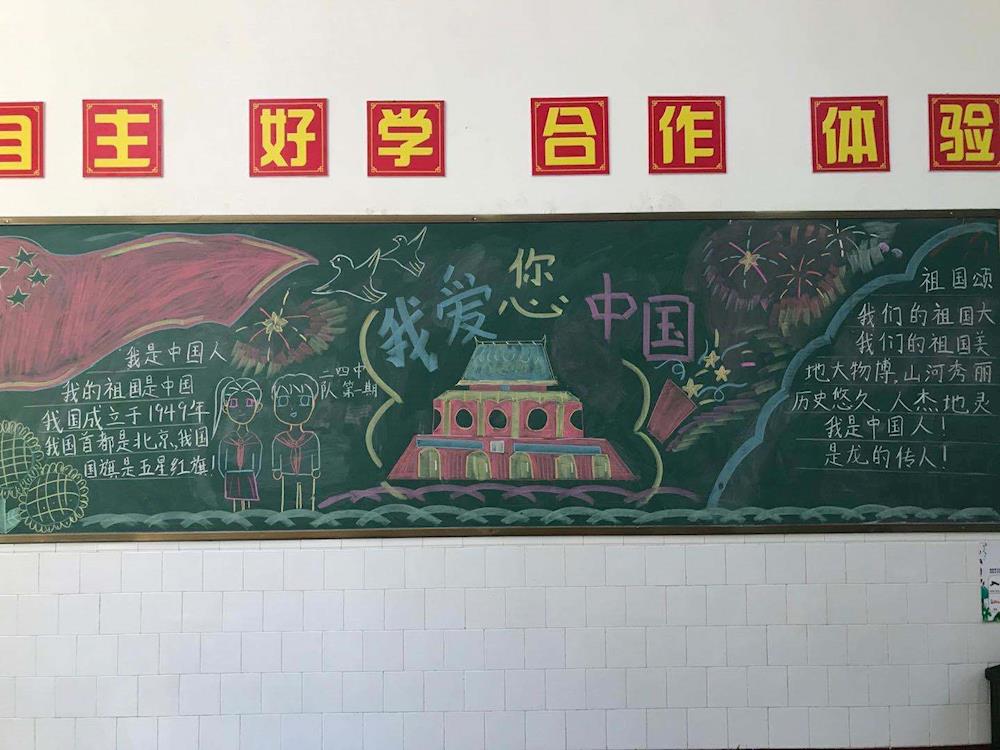 自主 好学 合作 体验
我爱您中国
我是中国人
我的祖国是中国
我国成立于1949年
我国首都是北京、我国
国旗是五星红旗!
二四中
队第一期
祖国颂
我们的祖国大
我们的祖国美
地大物博,山河秀丽
历史悠久、人杰地灵
我是中国人!
是龙的传人!